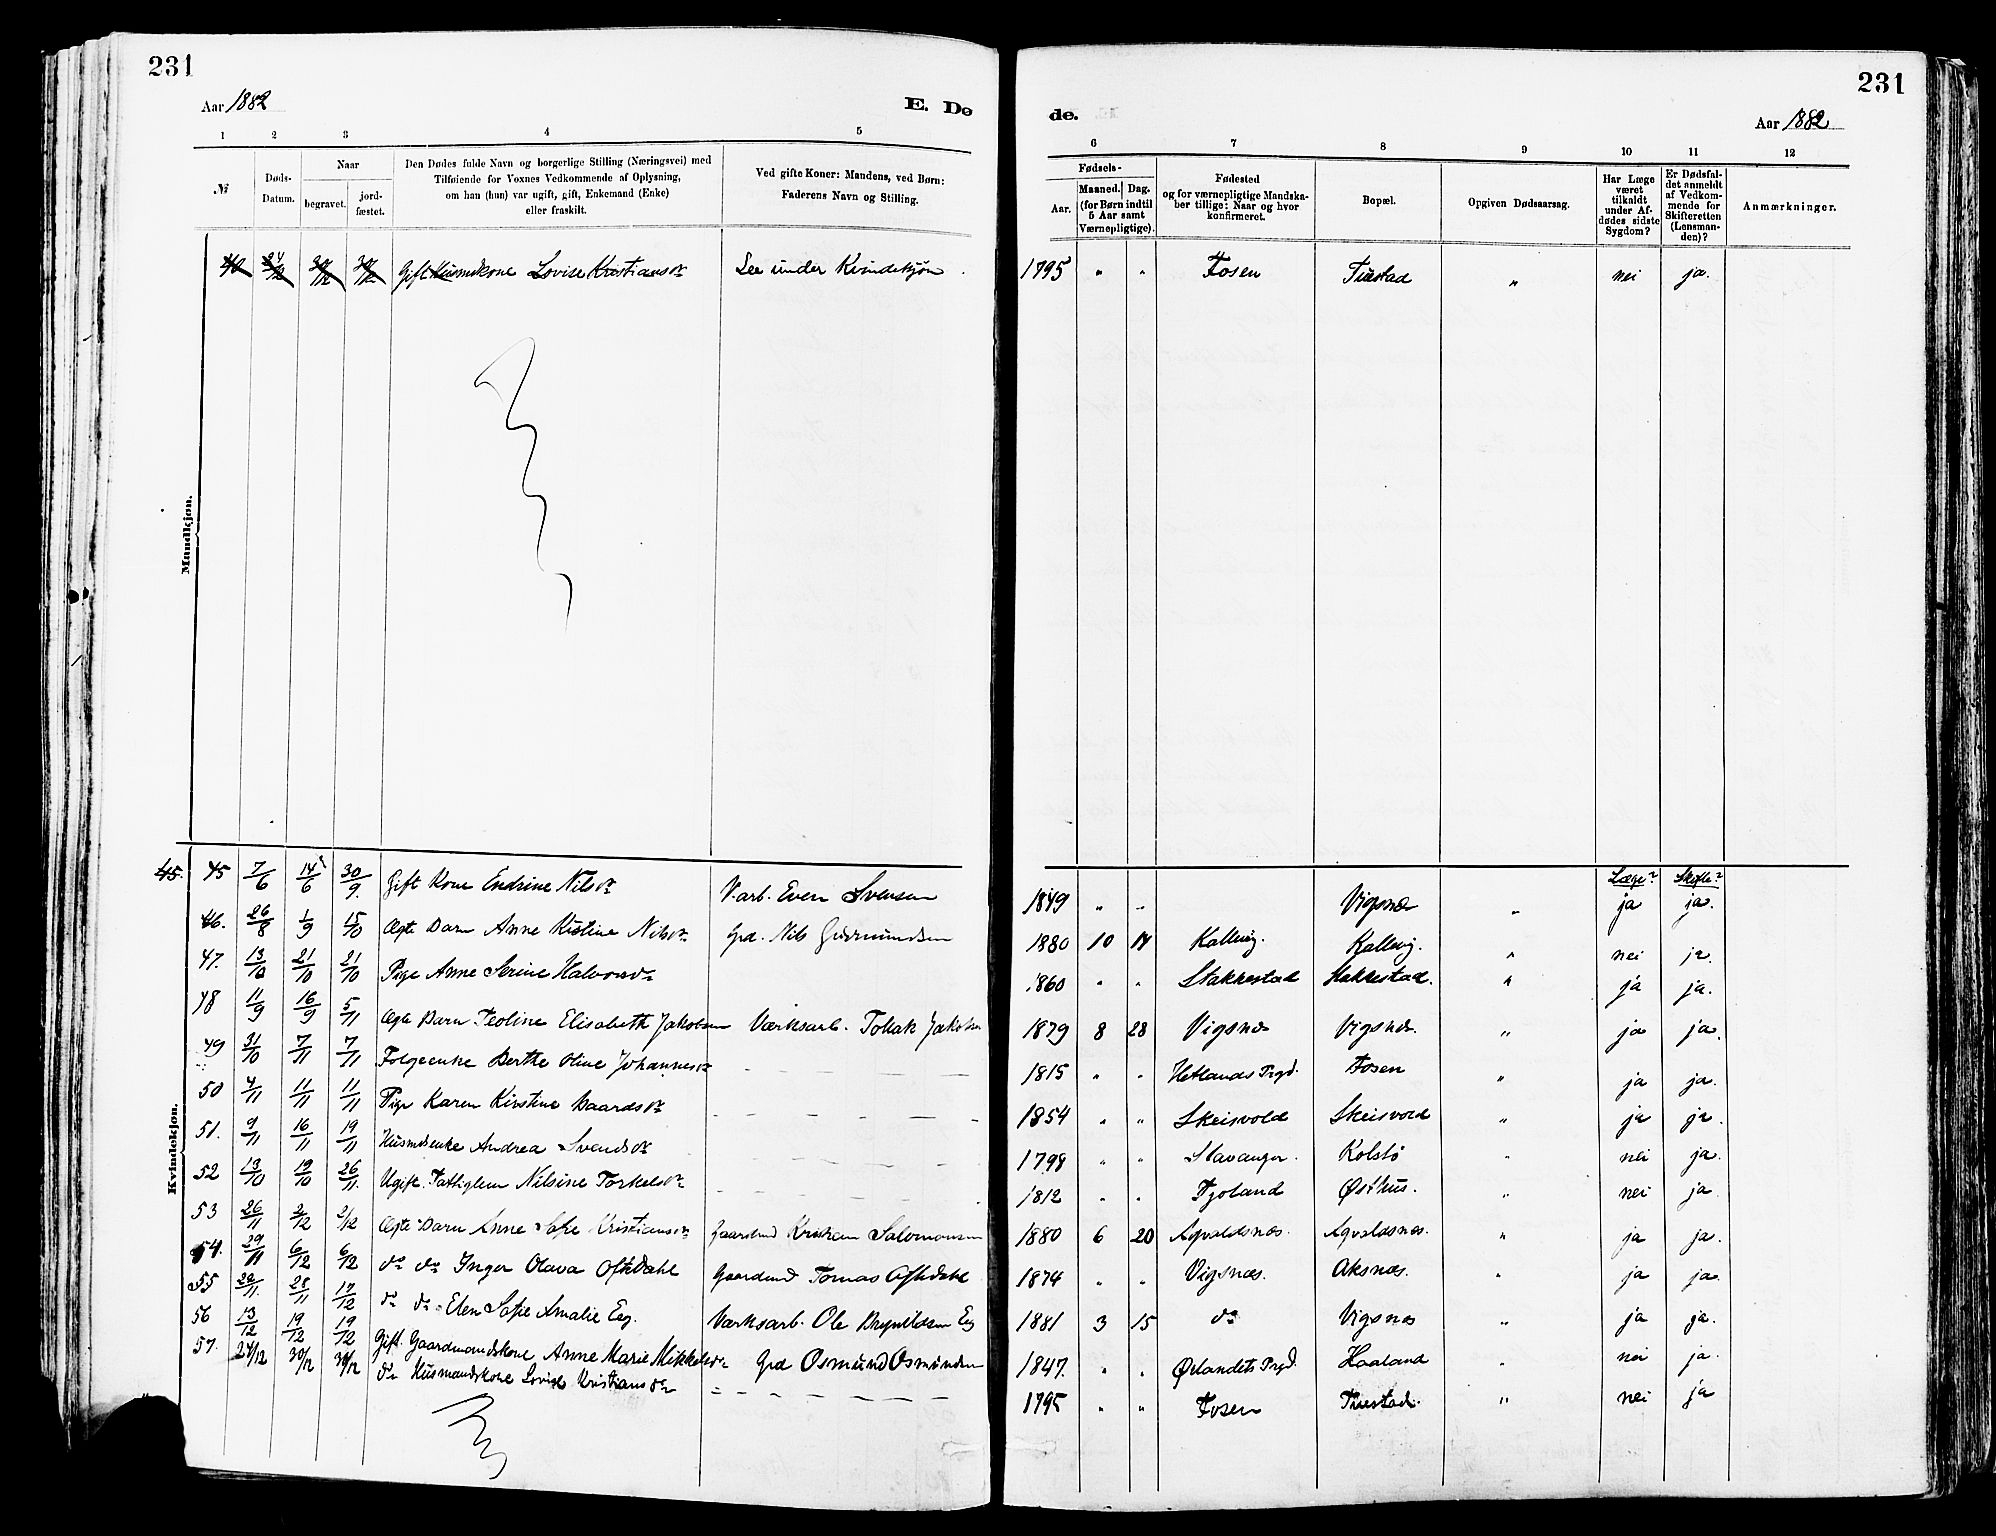 231
Aar 1882
E. Dø
1 2 3 4 5
№
Døds-Datum.
Naar
begravet.
jord-fæstet.
Den Dødes fulde Navn og borgerlige Stilling (Næringsvei) med
Tilføiende for Voxnes Vedkommende af Oplysning,
om han (hun) var ugift, gift, Enkemand (Enke)
eller fraskilt.
Ved gifte Koner: Mandens, ved Børn:
Faderens Navn og Stilling.
Mandkjøn.
24/12 30/12 30/12 Gift Husmdskone Lovise Kristiansdr See under Kvindekjøn
Kvindekjøn.
45. 45 7/6 14/6 30/9. Gift Kone Endrine Nilsdr V.arb. Even Svensen
46. 26/8 1/9 15/10 Ægte Barn Anne Kistine Nilsdr. Grd. Nils Gudmundsen
47. 13/10 21/10 21/10 Pige Anne Serine Halvorsdr
48 11/9 16/9 5/11 Ægte Barn Teoline Elisabeth Jakobsen Værksarb. Tollak Jakobsen
49 31/10 7/11 7/11 Folgeenke Berthe Oline Johannesdr
50 4/11 11/11 11/11 Pige Karen Kirstine Baardsdr
51. 9/11 16/11 19/11 Husmdsenke Andrea Svendsdr
52 13/10 19/10 26/11. Ugift. Fattiglem Nilsine Torkelsdr
53 26/11 2/12 2/12 Ægte Barn Anne Sofie Kristiansdr Gaardmd Kristian Salomonsen
54. 29/11 6/12 6/12 do do Inger Olava Oftedahl Gaardmd Tomas Oftedahl
55 20/11. 28/11 17/12 do do Elen Sofie Amalie Eeg. Værksarb. Ole Brynildsen Eeg
56 13/12 19/12 19/12 Gift. Gaardmandskone Anne Marie Mikkelsdr Grd Osmund Osmundsen
57. 24/12 30/12 30/12 do Husmandskone Lovise Kristiansdr
de.
231
Aar 1882
6 7 8 9 10 11 12
Fødsels-
Aar.
Maaned. Dag.
(for Børn indtil
5 Aar samt
Værnepligtige).
Fødested
og for værnepligtige Mandska-
ber tillige: Naar og hvor
konfirmeret.
Bopæl.
Opgiven Dødsaarsag.
Har Læge
været
tilkaldt
under Af-
dødes sidste
Sygdom?
Er Dødsfal-
det anmeldt
af Vedkom-
mende for
Skifteretten
(Lensman-
den)?
Anmærkninger.
1795 " " Fosen Tuestad " nei ja.
Læge? Skifte?
1849 " " Vigsnæs " ja ja.
1880 10 14 Kallevig. Kallevig. " nei ja.
1860 " " Stakkestad Stakkestad. " ja ja.
1879 8 28 Vigsnæs Vigsnæs. " ja ja.
1815 " " Hetlands Prgd. Fosen " ja ja.
1854 " " Skeisvold Skeisvold " ja ja.
1798 " " Stavanger. Kolstø " nei ja.
1812 " " Fjøland Østhus. " nei ja
1880 6 20 Agvaldsnæs. Agvaldsnæs. " ja ja.
1874 " " Vigsnæs. Aksnæs. " ja ja.
1881 3 15 do Vigsnæs " ja ja.
1847. " " Ørlandets Prgd. Haaland " nei ja.
1795 " " Fosen Tuestad. " nei ja